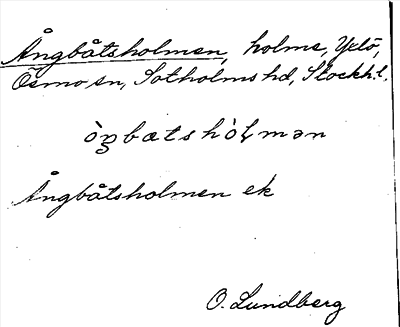 Ångbåtsholmen, holme, Yxlö,
Ösmo sn, Sotholms hd, Stockh. l.
òŋbætshòlmən
Ångbåtsholmen ek
O. Lundberg